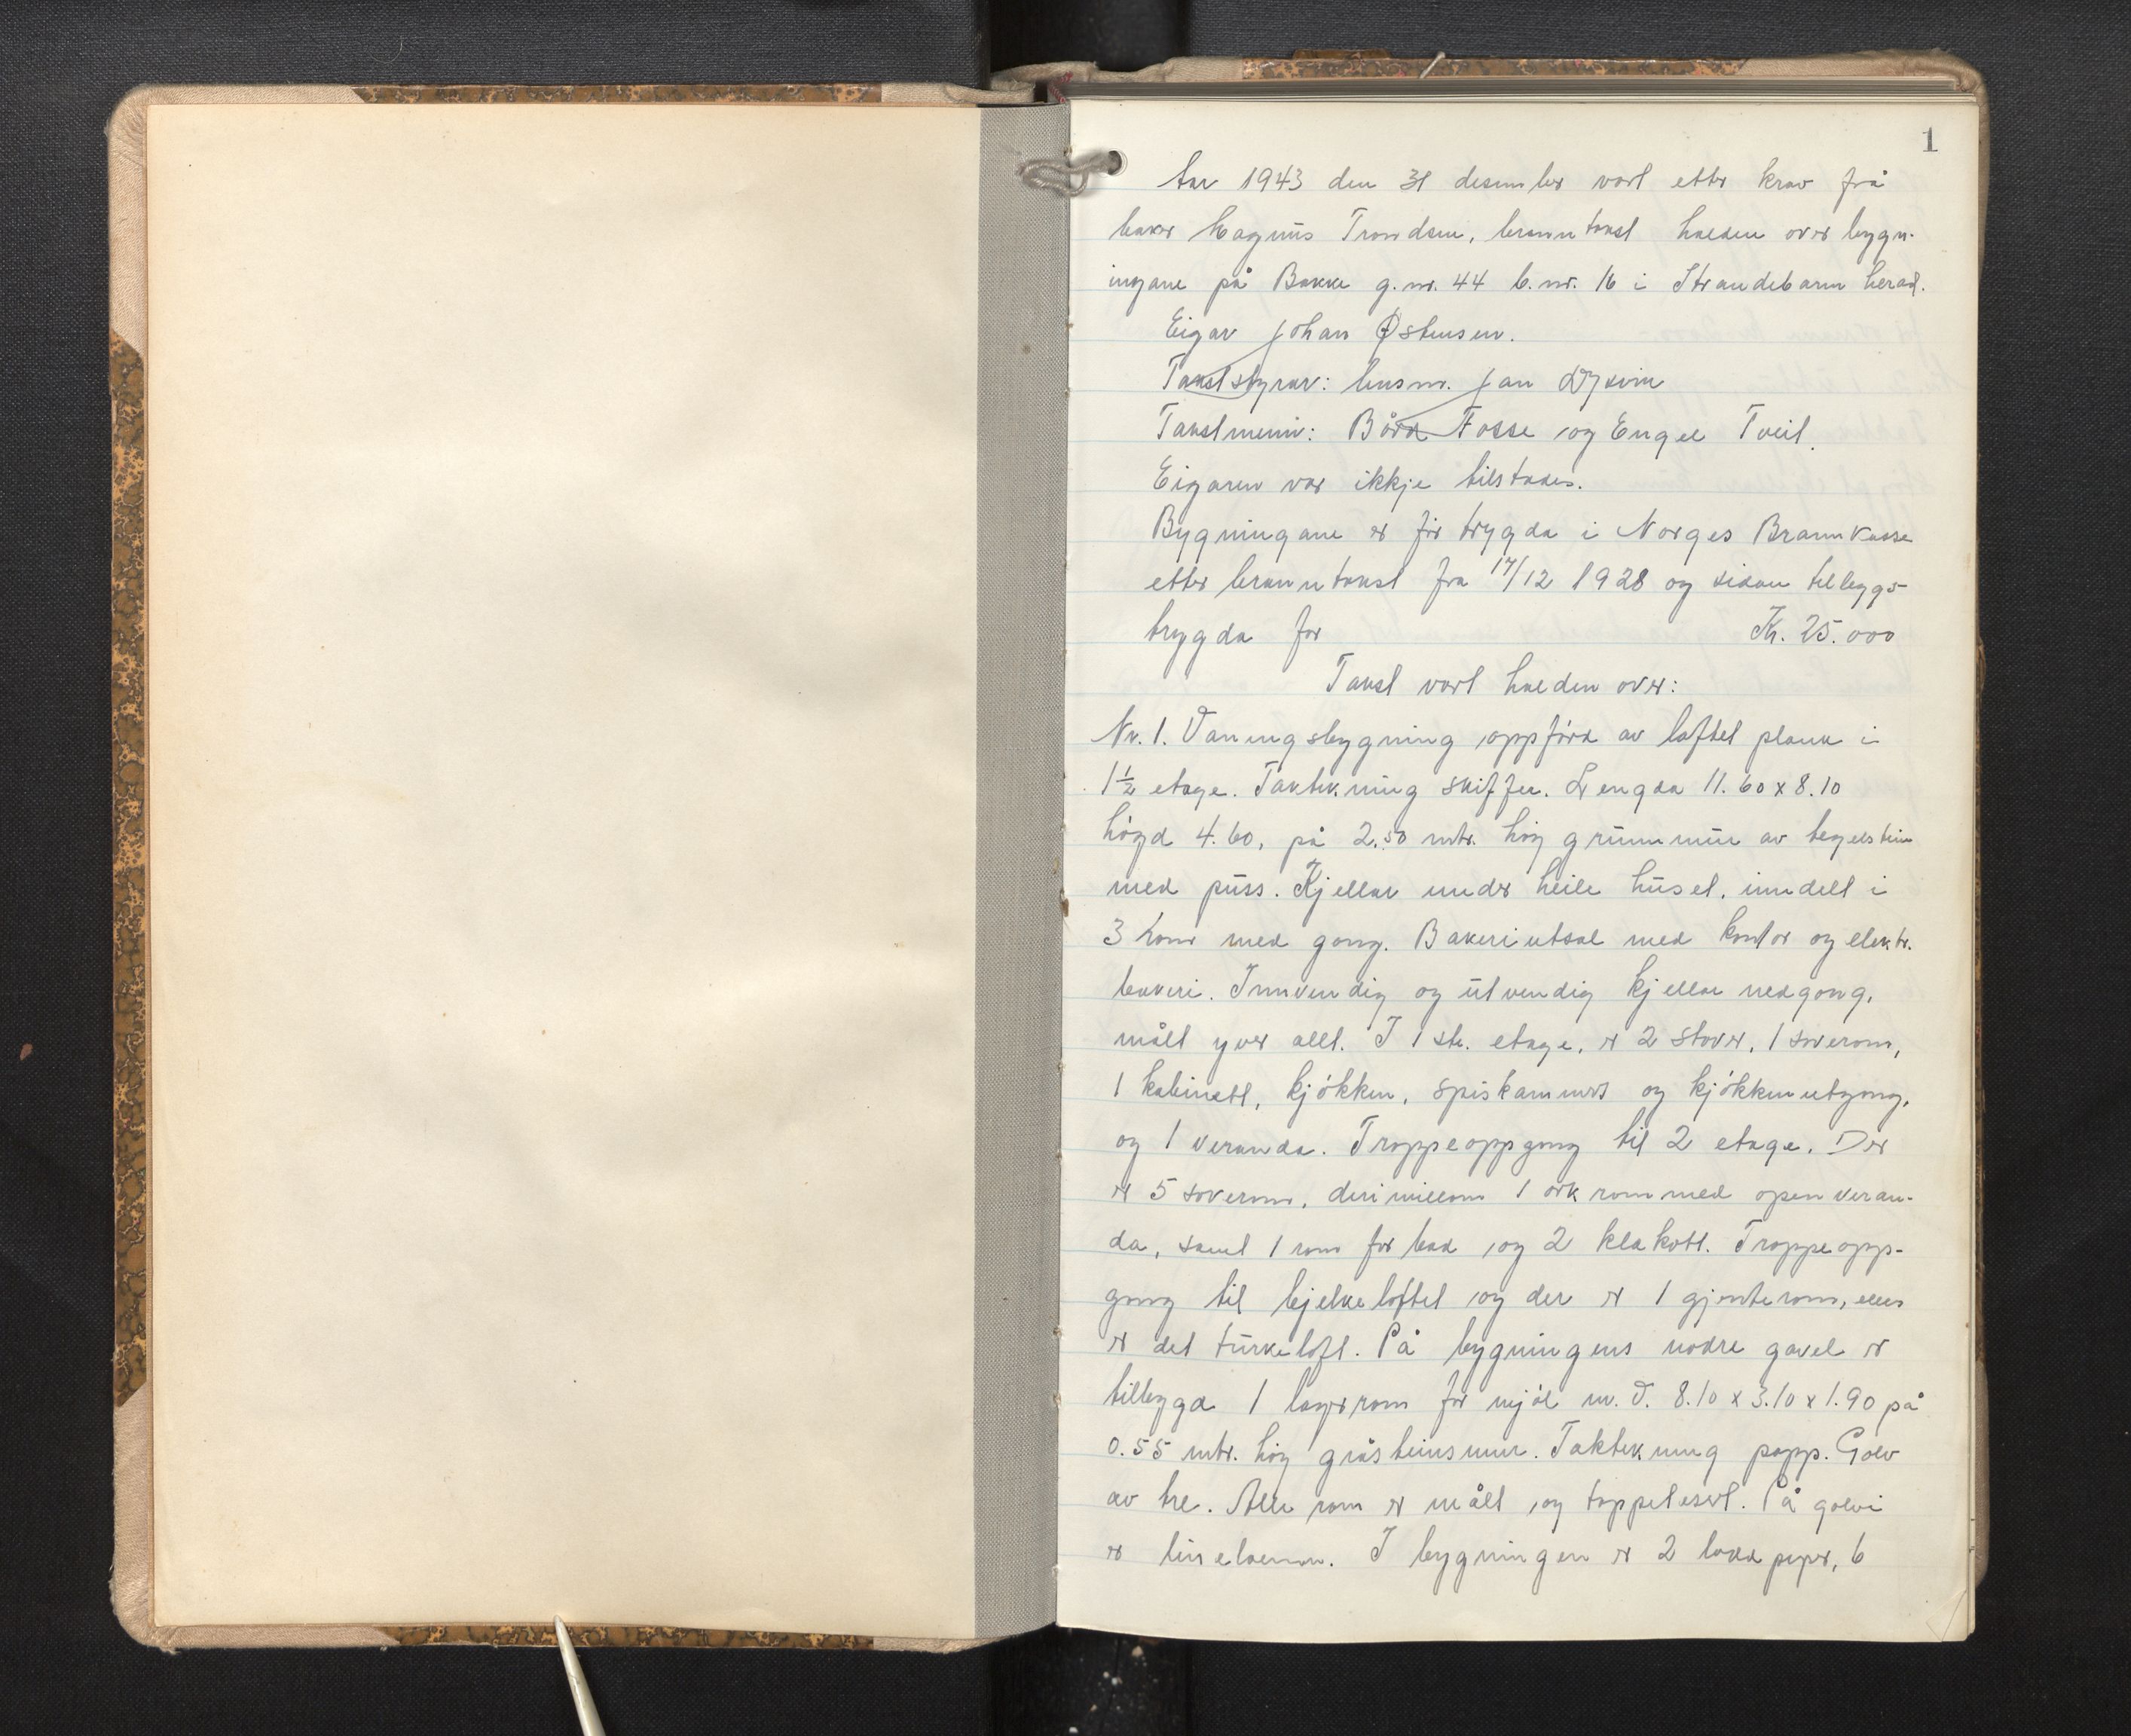 1
Aar 1943 den 31 desember vart etter krav frå
baker Magnus Trondsen, branntakst halden over bygn-
ingane på Bakke g.nr. 44 b.nr. 16 i Strandebarm herad.
Eigar Johan Østensen.
Takststyrar: lensm. Jan Dysvik
Takstmenn: Bård Fosse og Engel Tveit.
Eigaren var ikkje tilstades.
Bygningane er fór trygda i Norges Brannkasse
etter branntakst fra 17/12 1928 og sidan tilleggs-
trygda for Kr. 25.000
Takst vart halden over:
Nr. 1. Vaningsbygning oppførd av laftet plank i
1½ etage. Taktekning skiffer. Lengda 11.60 x 8.10
høgd 4.60, på 2.50 mtr. høg grunnmur av teglstein
med puss. Kjellar under heile huset, inndelt i
3 rom med gong. Bakeriutsal med kontor og elektr.
bakeri. Innvendig og utvendig kjellar nedgong,
målt yver allt. I 1ste. etage, er 2 stover, 1 soverom,
1 kabinett, kjøkken, spiskammers og kjøkkenutgong,
og 1 veranda. Troppeoppgong til 2 etage. Der
er 5 soverom, derimillom 1 ark rom med open veran-
da, samt 1 rom for bad og 2 klekott. Troppeopp-
gong til bjelkeloftet og der er 1 gjenterom, elles
er det turkeloft. På bygningens nordre gavel er
tilbygd 1 lagerrom for mjøl m. V. 8.10 x 3.10 x 1.90 på
0.55 mtr. høg gråsteinsmur. Taktekning papp. Golv
av tre. Alle rom er målt og toppetesert. På golvi
er linoleum. I bygningen er 2 ladd piper, 6